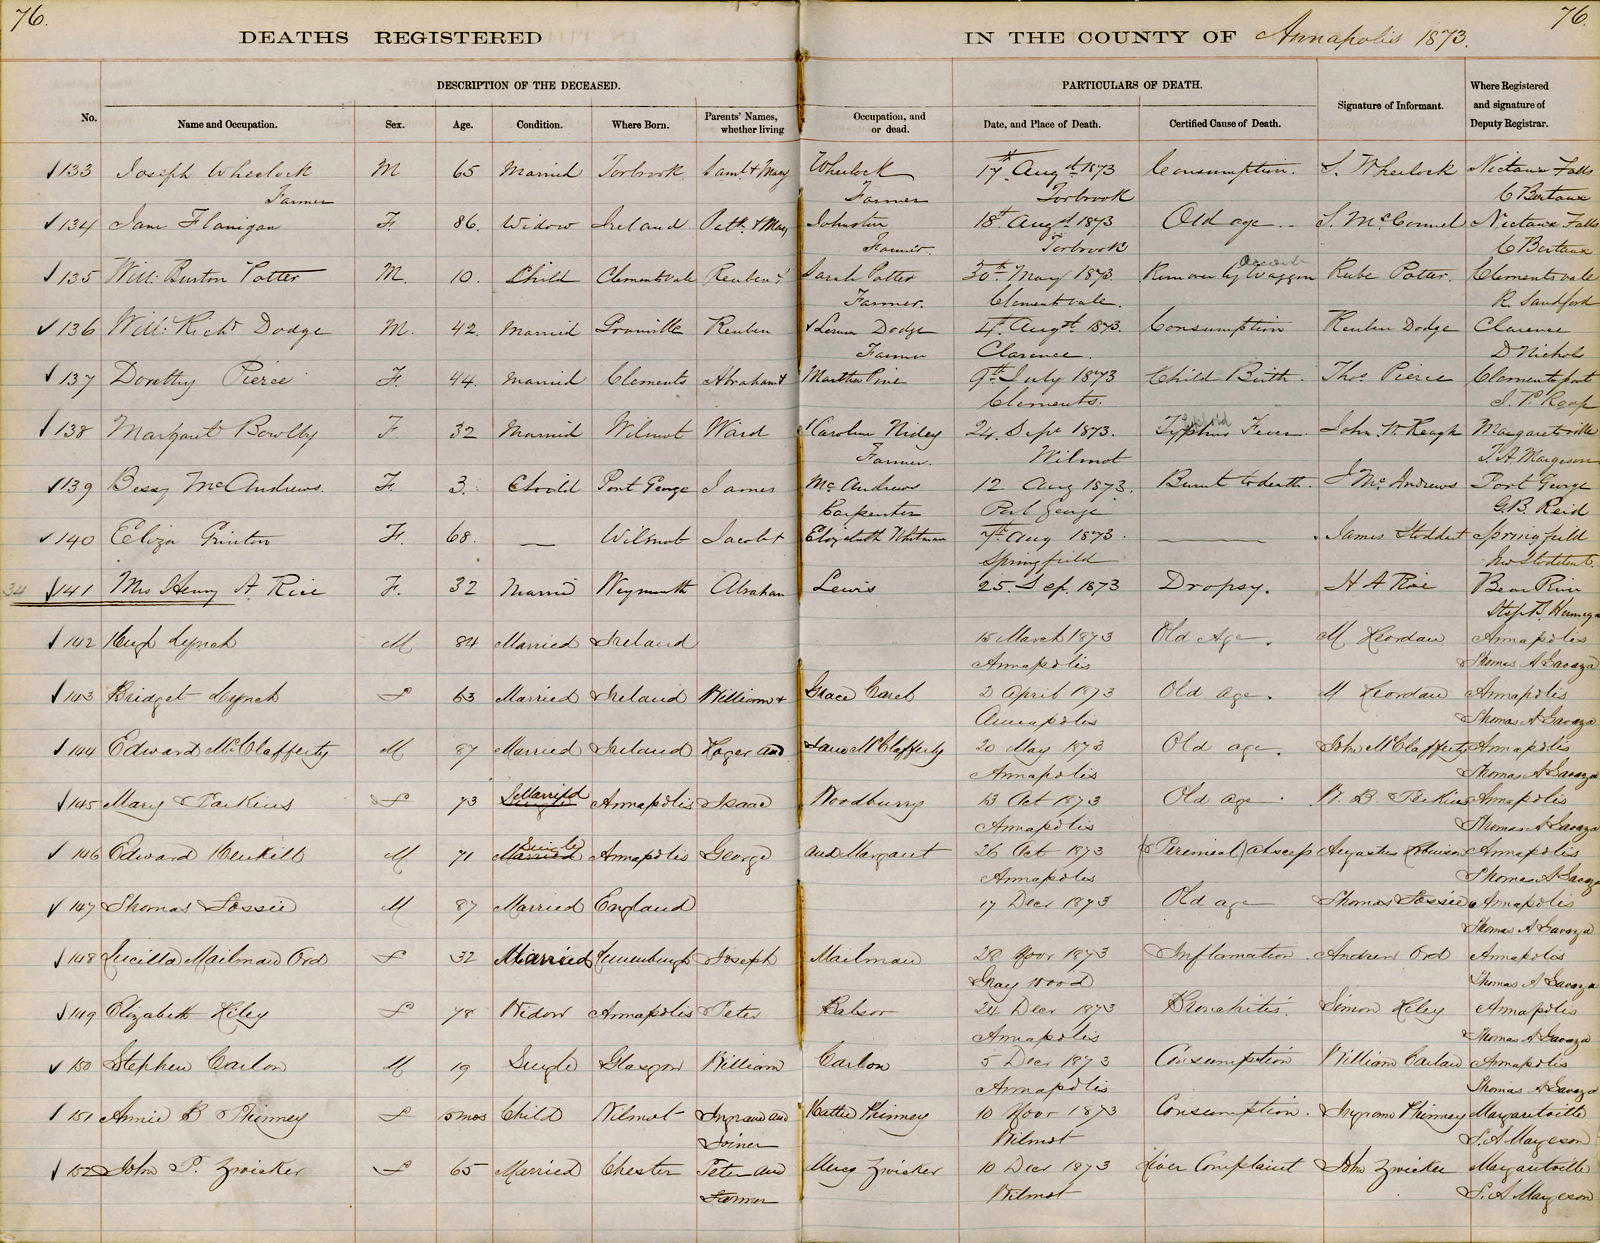 76. 76.
DEATHS REGISTERED IN THE COUNTY OF Annapolis 1873.
DESCRIPTION OF THE DECEASED. PARTICULARS OF DEATH.
No. Name and Occupation. Sex. Age. Condition. Where Born. Parents' Names, whether living Occupation, and or dead. Date, and Place of Death. Certified Cause of Death. Signature of Informant. Where Registered and signature of Deputy Registrar.
133 Joseph Wheelock M 65 Married Torbrook Saml & Mary Wheelock 17th Augd 1873 Consumption. S. Wheelock Nictaux Falls
Farmer Farmer Torbrook C Bertaux
134 Jane Flanigan F. 86. Widow Ireland Patk. & Mary Johnston 18th Augd 1873 Old age. S. McConnel Nictaux Falls
Farmer. Torbrook C Bertaux
135 Willi. Burton Potter M. 10. Child Clementsvale Reuben & Sarah Potter 30th May 1873. Run over by Waggon Rube Potter. Clementsvale
Farmer. Clementvale. R Sandford
136 Willi. Richd Dodge M. 42. Married Granville Reuben & Dodge 4th Augth 1873. Consumption Reuben Dodge Clarence
Farmer Clarence. D Nichols
137 Dorothy Pierce F. 44. Married Clements Abraham & Martha Pine 9th July 1873 Child Birth. Thos. Pierce Clementsport
Clements.
138 Margaret Bowlby F 32 Married Wilmot Ward & Caroline Nidey 24. Sept 1873. Typhus Fever John Keagh Margaretville
Farmer. Wilmot Margeson
139 Bessy McAndrews. F. 3. Child Port George James McAndrews 12 Aug 1873. Burnt to death. J McAndrews Port George
Carpenter Port George G.B. Reid
140 Eliza Grinton F. 68. — Wilmot Jacob & Elizabeth Whitman 7th Aug 1873. — James Stoddart Springfield
Springfield
34 141 Mrs Henry A. Rice F. 32 Married Weymouth Abraham Lewis 25. Sep. 1873 Dropsy. H A Rice Bear River
142 Hugh Lynch M 84 Married Ireland 15 March 1873 Old Age. M Reordan Annapolis
Annapolis Thomas A Gavaza
143 Bridget Lynch F 63 Married Ireland William & Grace 2 April 1873 Old age. M Reordan Annapolis
Annapolis Thomas A Gavaza
144 Edward McClafferty M 87 Married Ireland Roger and Jane McClafferty 20 May 1873 Old age. John McClafferty Annapolis
Annapolis Thomas A Gavaza
145 Mary Parkins F 73 Married Single Annapolis Isaac Woodbury 13 Oct 1873 Old age. Annapolis
Annapolis Thomas A Gavaza
146 Edward M 71 Single Married Annapolis George and Margaret 26 Oct 1873 Augustus Robinson Annapolis
Annapolis Thomas A Gavaza
147 Thomas Fossie M 87 Married England 17 Decr 1873 Old age Thomas Fossie Annapolis
Thomas A Gavaza
148 Lucilla Mailman Ord F 32 Married Joseph Mailman 28 Novr 1873 Inflamation Andrew Ord Annapolis
Gray Wood Thomas A Gavaza
149 Elizabeth Riley F 78 Widow Annapolis Peter 24 Decr 1873 Bronchitis. Simon Riley Annapolis
Annapolis Thomas A Gavaza
150 Stephen Carlon M 19 Single Glasgow William Carlon 5 Decr 1873 Consumption William Carlon Annapolis
Annapolis Thomas A Gavaza
151 Annie B Phinney F 5 mos Child Wilmot Ingram and Hattie Phinney 10 Novr 1873 Consumption. Ingram Phinney Margaretville
Joiner Wilmot S.A Margeson
152 John P. Zwicker F 65 Married Chester Peter and Mercy Zwicker 10 Decr 1873 Liver Complaint John Zwicker Margaretville
Farmer Wilmot S. A Margeson